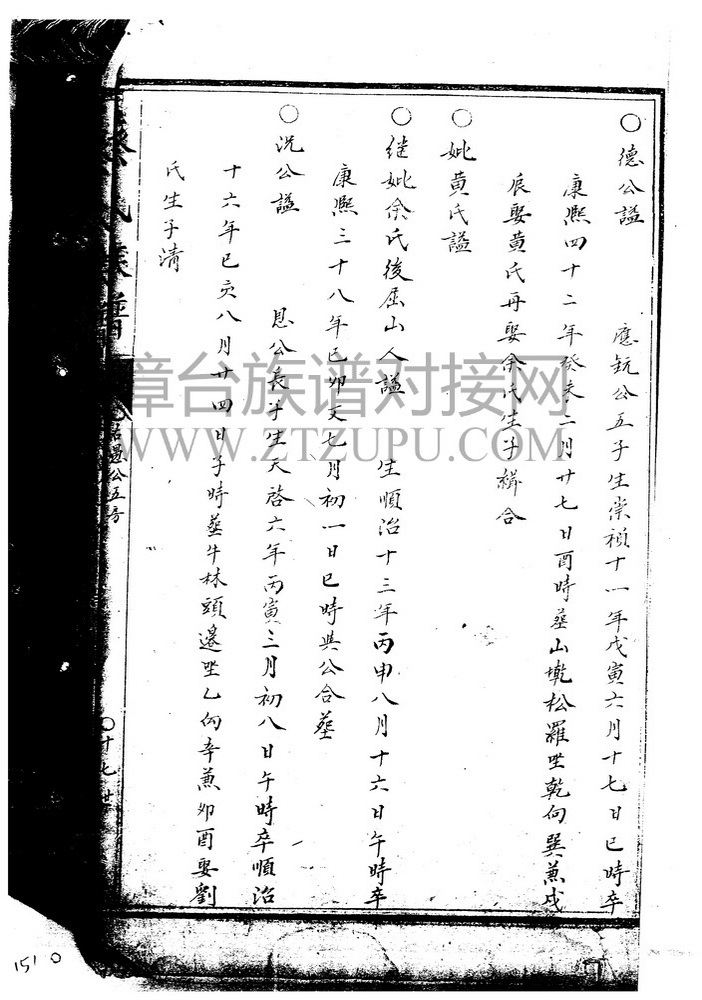 ○德公諡 應鈗公五子生崇禎十一年戊寅六月十七日巳時卒
康熙四十二年癸未二月廿七日酉時葬山墘松羅坐乾向巽兼戌
辰娶黃氏再娶余氏生子緝合
○妣黃氏諡
○继妣余氏後屈山人諡 生順治十三年丙申八月十六日午時卒
康熙三十八年己卯又七月初一日巳時與公合葬
○況公諡 恩公長子生天啓六年丙寅三月初八日午時卒順治
十六年己亥八月廿四日子時葬牛林頭邊坐乙向辛兼卯酉娶劉
氏生子清
氏族譜
愚公五房
○十七世
章台族谱对接网
WWW.ZTZUPU.COM
1510